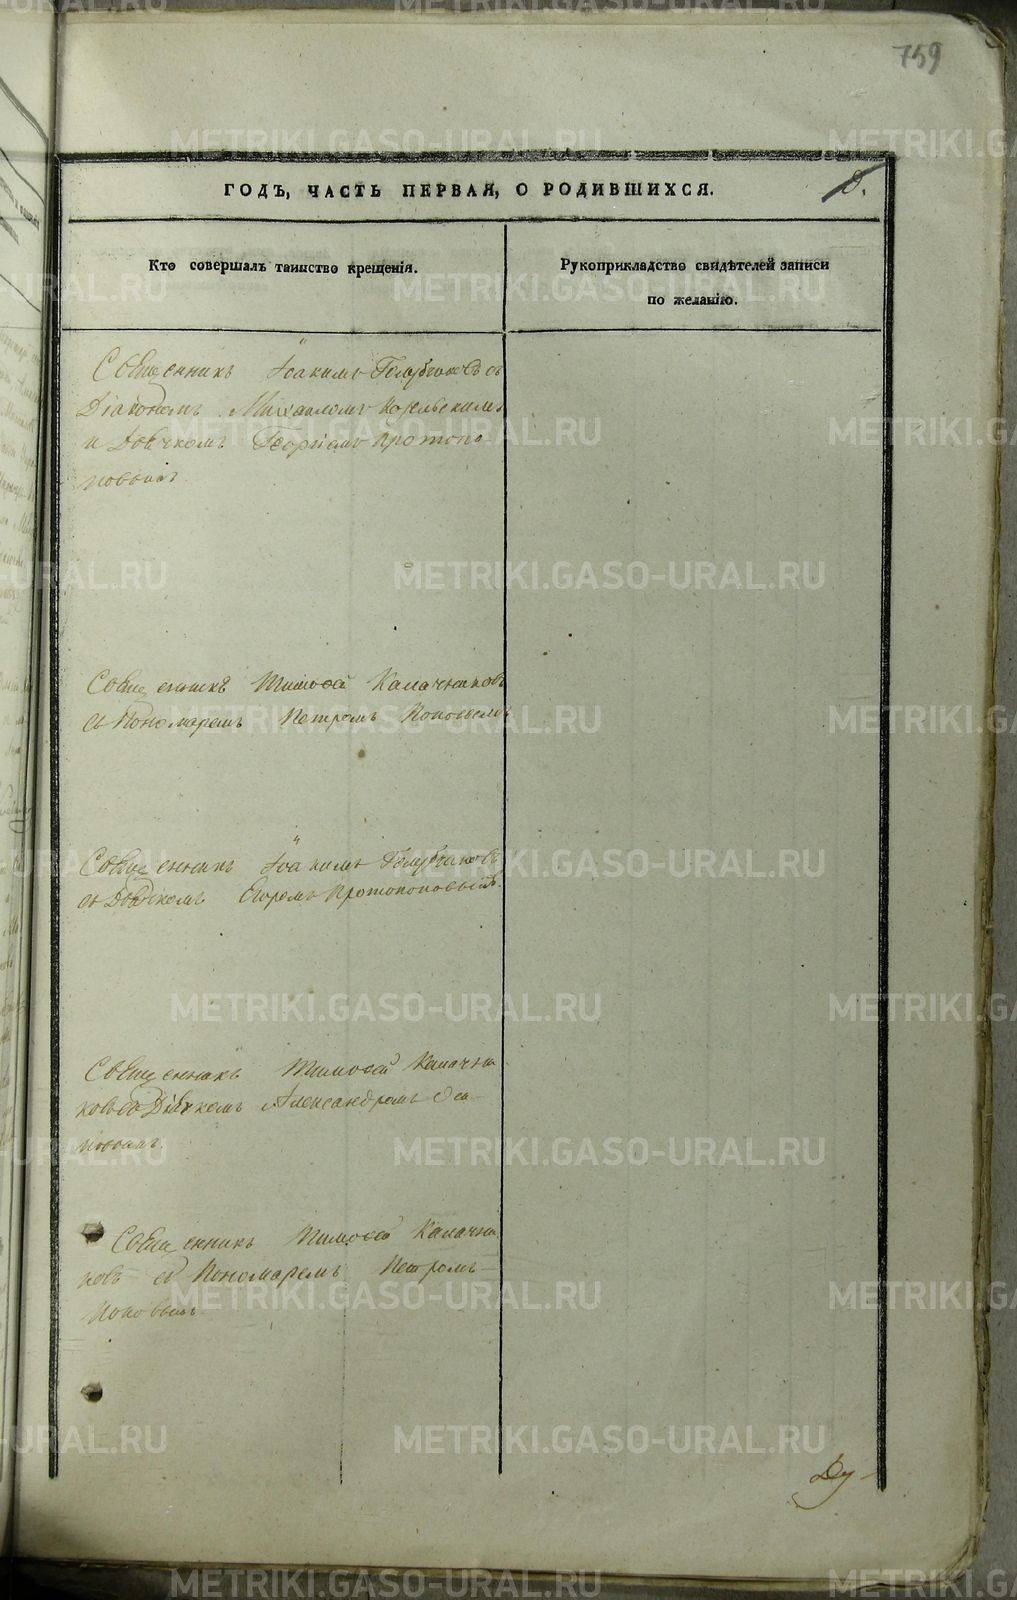 759
ГОДЪ, ЧАСТЬ ПЕРВАЯ, О РОДИВШИХСЯ.
Кто совершалъ таинство крещенія.
Рукоприкладство свидѣтелей записи
по желанію.
Священникъ Іоакимъ Голубчиковъ съ
Діакономъ Михаиломъ
и Дьячкомъ Георгіемъ Протопо-
повымъ.
Священникъ Тимофей Калачниковъ
съ Пономаремъ Петромъ Поповымъ
Священникъ Іоакимъ Голубчиковъ
съ Дьячкомъ Егоромъ Протопоповымъ.
Священникъ Тимофей Калачни
ковъ съ Дьячкомъ Александромъ
Священникъ Тимофей Калачни
ковъ съ Пономаремъ Петромъ
Поповымъ
METRIKI.GASO-URAL.RU